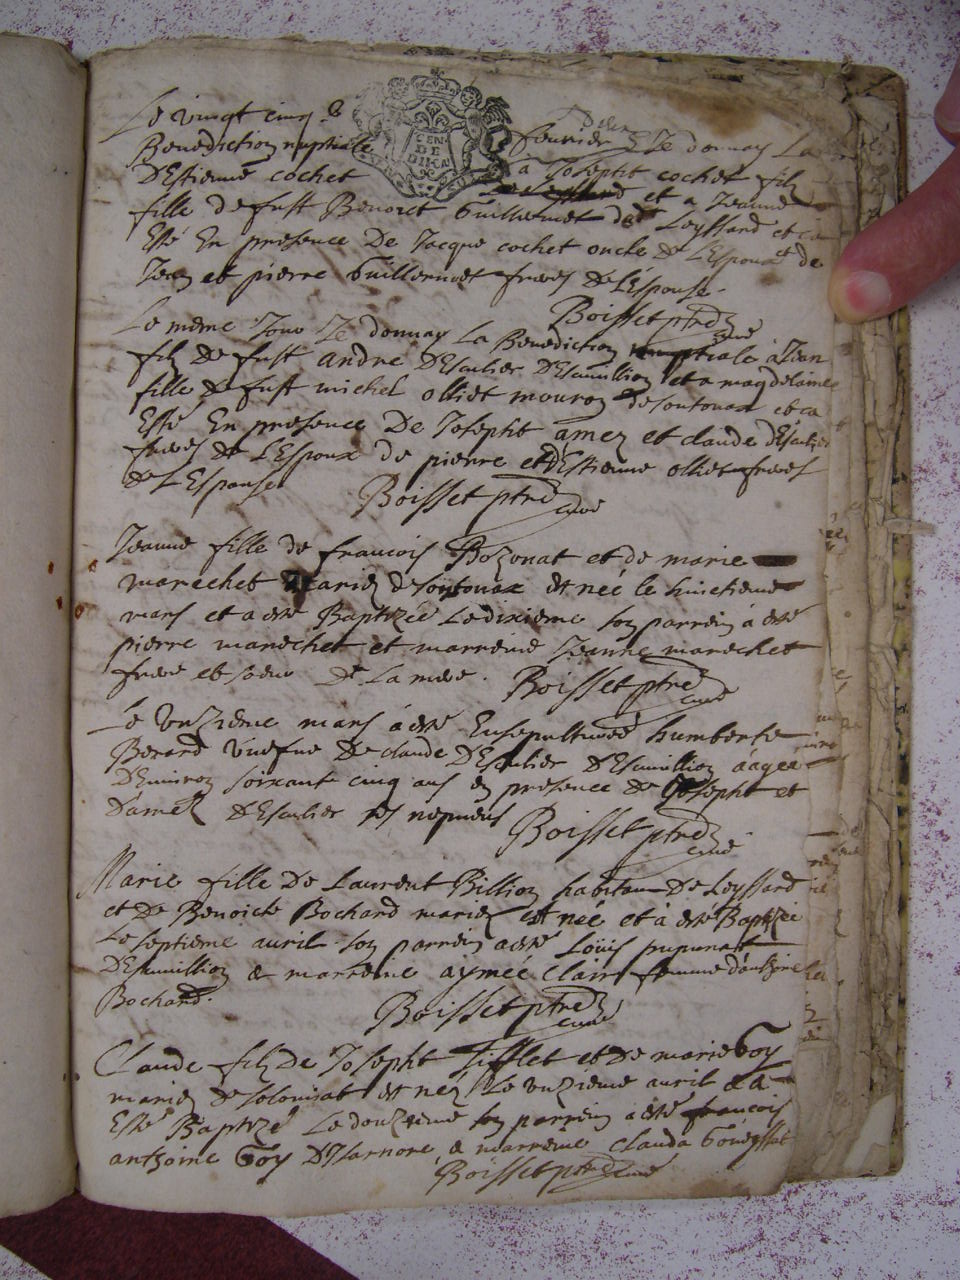 Le vingt cinq
fevrier Je donnay La
Benediction nuptiale
GEN
DE
DIJON
DEstienne cochet
à Josepht cochet filz
et a Jeanne
fille de fust Benoict Guillermet de Leyssard et ca
Esté En presence De Jacque cochet oncle de LEspoux et de
Jean et pierre Guillermet freres de LEspouse.
Boisset ptre curé
Le même Jour Je donnay La Benediction nuptiale à Jean
filz de fust andre DEscelier et a magdelaine
fille de fust michel olliet mouron de soutonax et ca
Esté En presence De Josepht amez et claude
freres de LEspoux de pierre et dEstienne olliet freres
de LEspouse
Boisset ptre curé
Jeanne fille de francois Bozonat et de marie
mareschet mariez de soutonax est née le huictieme
mars et a esté Baptizée Le dixieme son parrein à esté
pierre mareschet et marreine Jeanne mareschet
frere et soeur De La mere.
Boisset ptre curé
Le unzieme mars à esté Ensepulturée humberte
Berard veufue De claude aagée
Denviron soixant cinq ans en presence de Josepht et
Damez ses nepueus
Boisset ptre curé
Marie fille De Laurent Billion habitan De Leyssard
et De Benoicte Bochard mariez est née et à esté Baptizée
Le septieme avril son parrein a esté Louis
& marreine aymée Claire femme dantoine
Bochard.
Boisset ptre curé
Claude filz De Josepht Sifflet et de marie Goy
mariez de solomiat est nez Le unzieme avril & a
Esté Baptizé Le douzieme son parrein à esté francois
antoine Goy & marreine Clauda
Boisset ptre curé